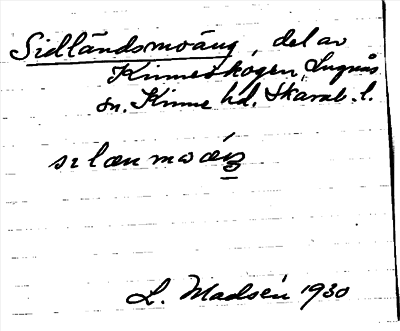 Sidländsmoäng, del av
Kinneskogen, Lugnås
sn. Kinne hd. Skarab. l.
L. Madsén 1930